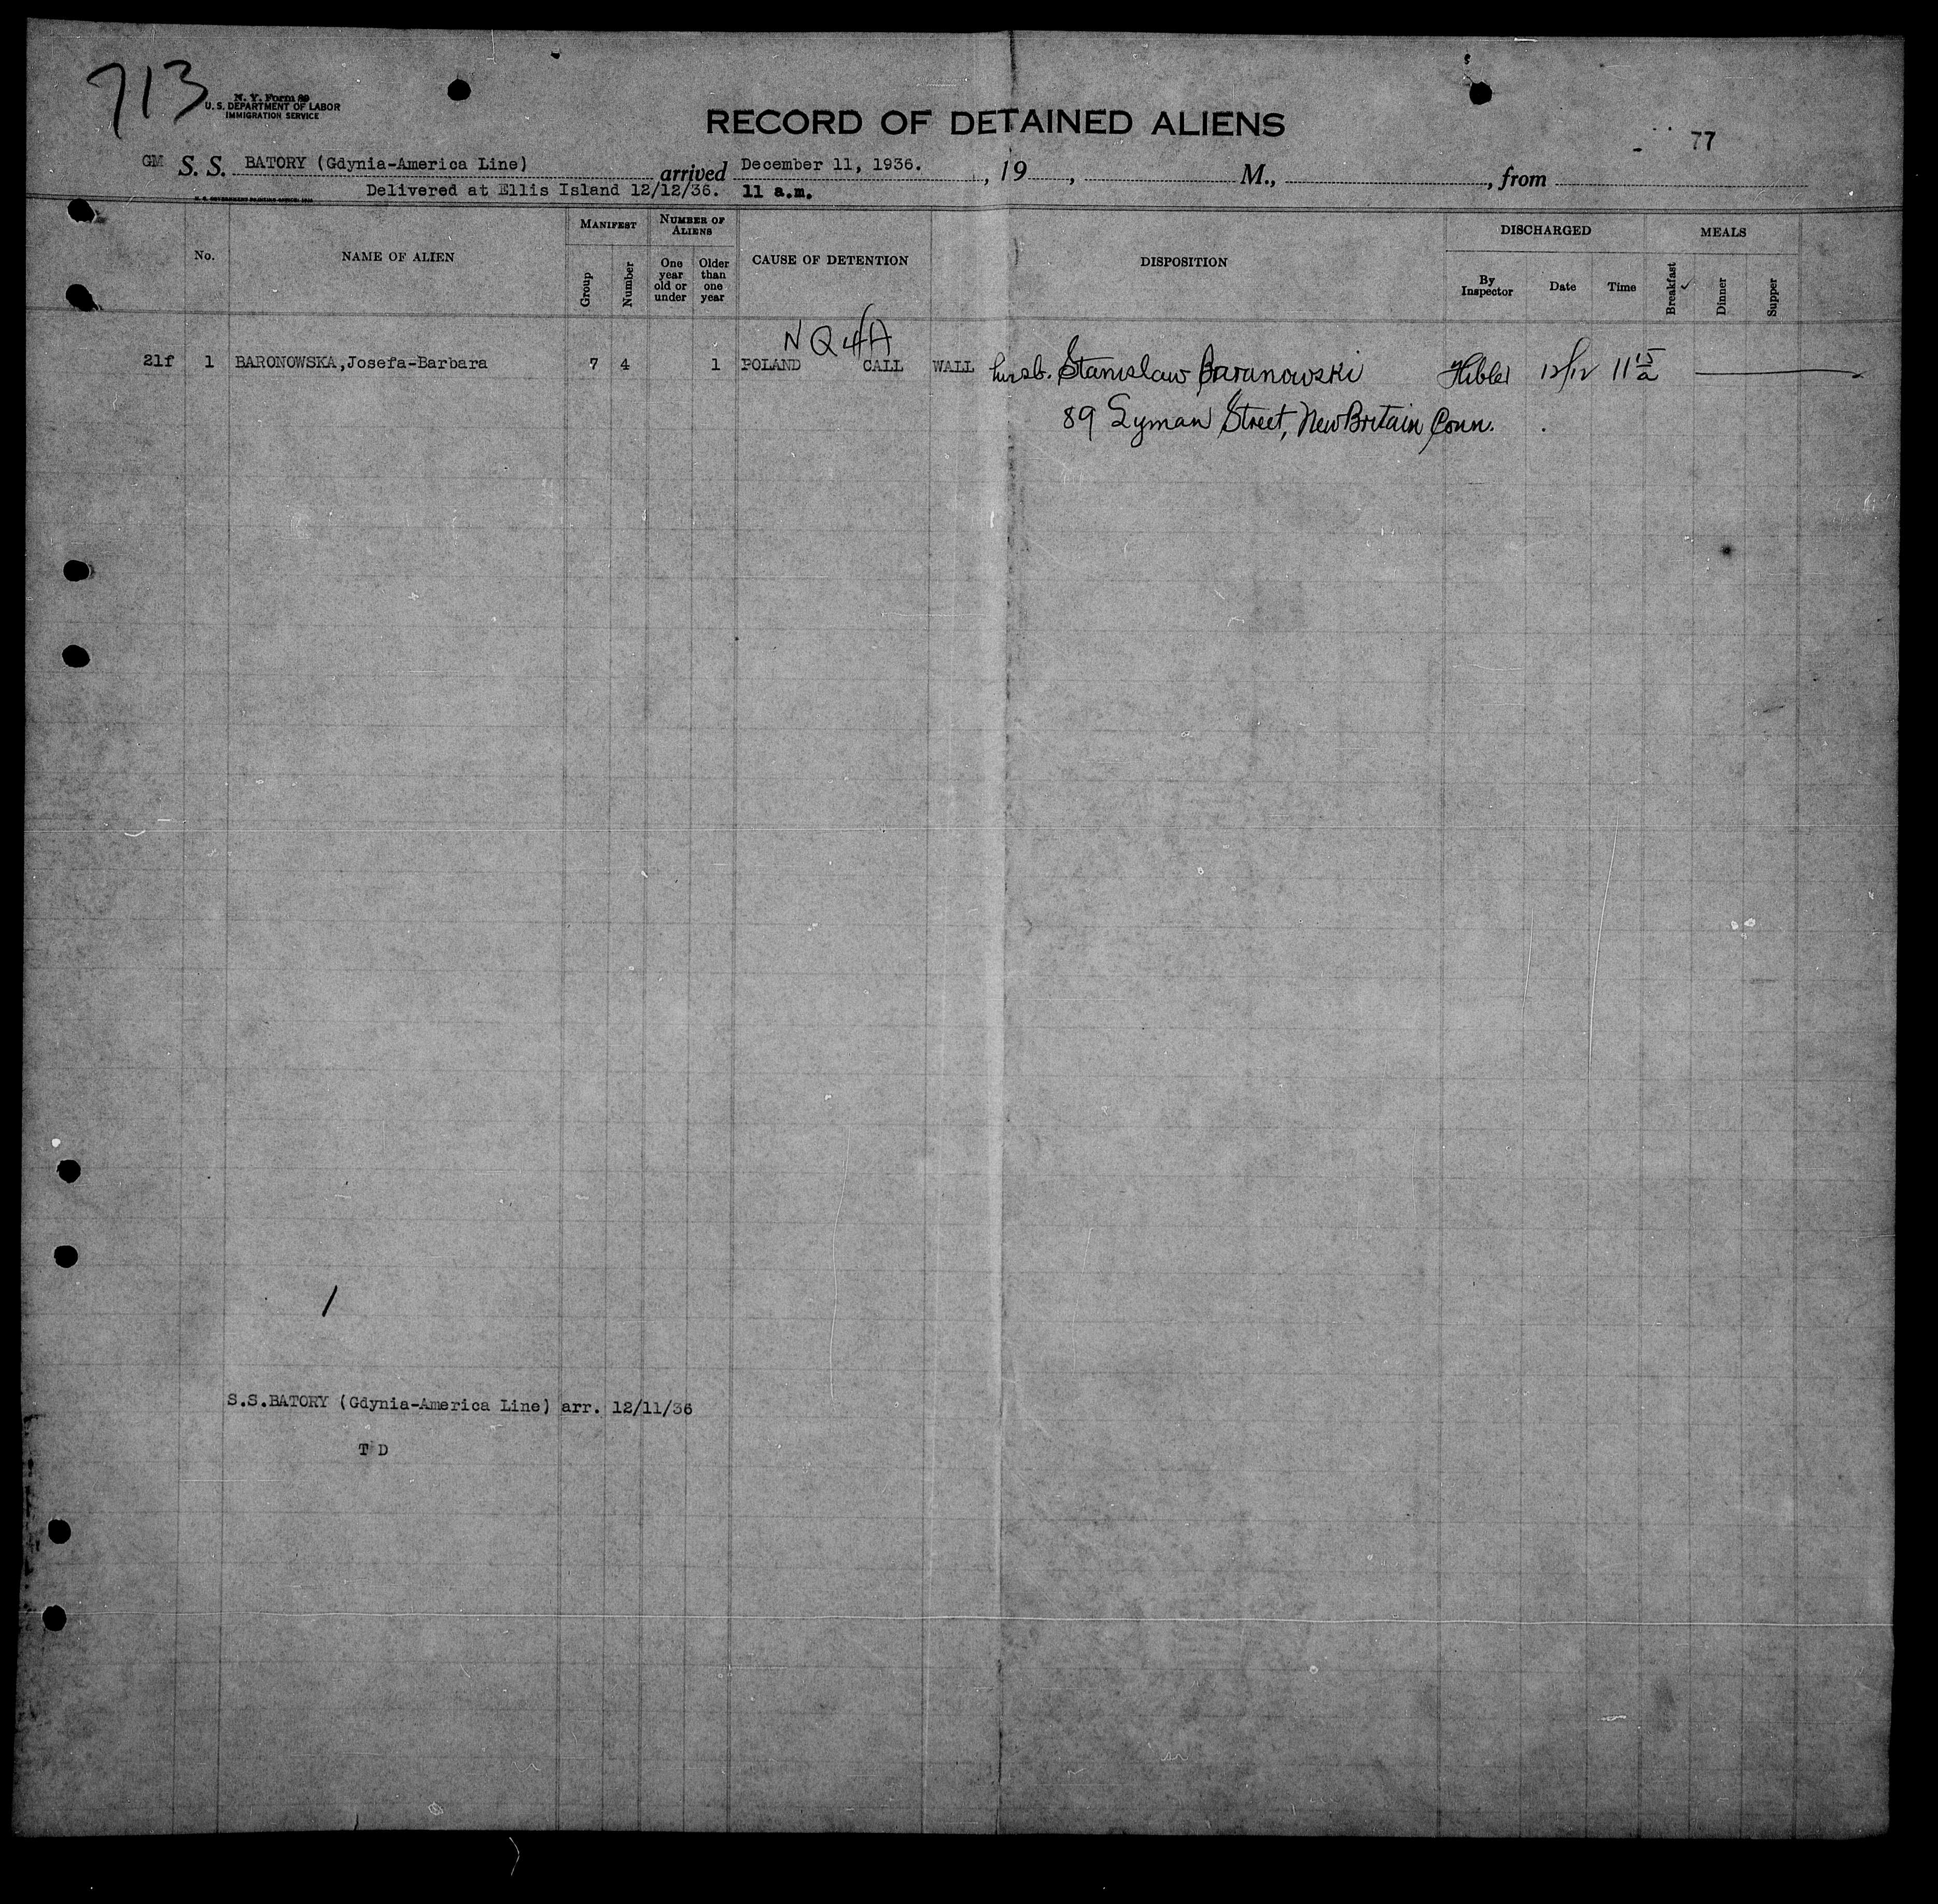 713
N. Y. Form 89
U. S. DEPARTMENT OF LABOR
IMMIGRATION SERVICE
RECORD OF DETAINED ALIENS
77
GM S. S. BATORY (Gdynia-America Line) arrived December 11, 1936. , 19 , M., , from
Delivered at Ellis Island 12/12/36. 11 a.m.
No.
NAME OF ALIEN
MANIFEST
Group
Number
NUMBER OF ALIENS
One year old or under
Older than one year
CAUSE OF DETENTION
DISPOSITION
DISCHARGED
By Inspector
Date
Time
MEALS
Breakfast ✓
Dinner
Supper
N Q 4A
21f 1 BARONOWSKA,Josefa-Barbara 7 4 1 POLAND CALL WALL husb. Stanislaw Baranowski 12/12 11 15/a
89 Lyman Street, New Britain Conn.
S.S.BATORY (Gdynia-America Line) arr. 12/11/36
T D